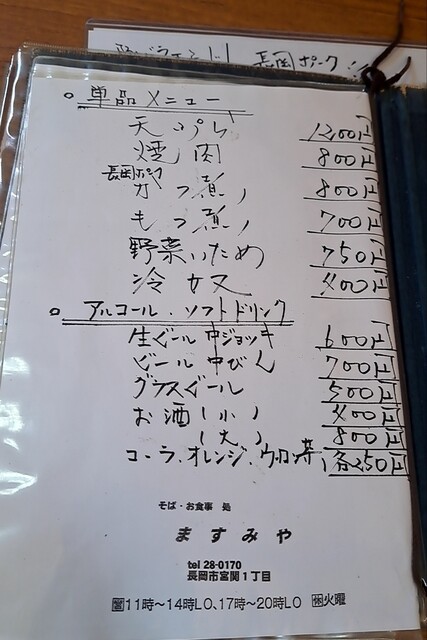 長岡ポーク
○単品メニュー
天ぷら 1200円
焼肉 800円
長岡ポーク
カツ煮 800円
もつ煮 700円
野菜いため 750円
冷奴 400円
○アルコール・ソフトドリンク
生ビール中ジョッキ 600円
ビール中びん 700円
グラスビール 500円
お酒(小) 400円
(大) 800円
コーラ、オレンジ、ウーロン茶 各250円
そば・お食事 処
ますみや
tel 28-0170
長岡市宮関1丁目
営11時～14時LO、17時～20時LO 休火曜